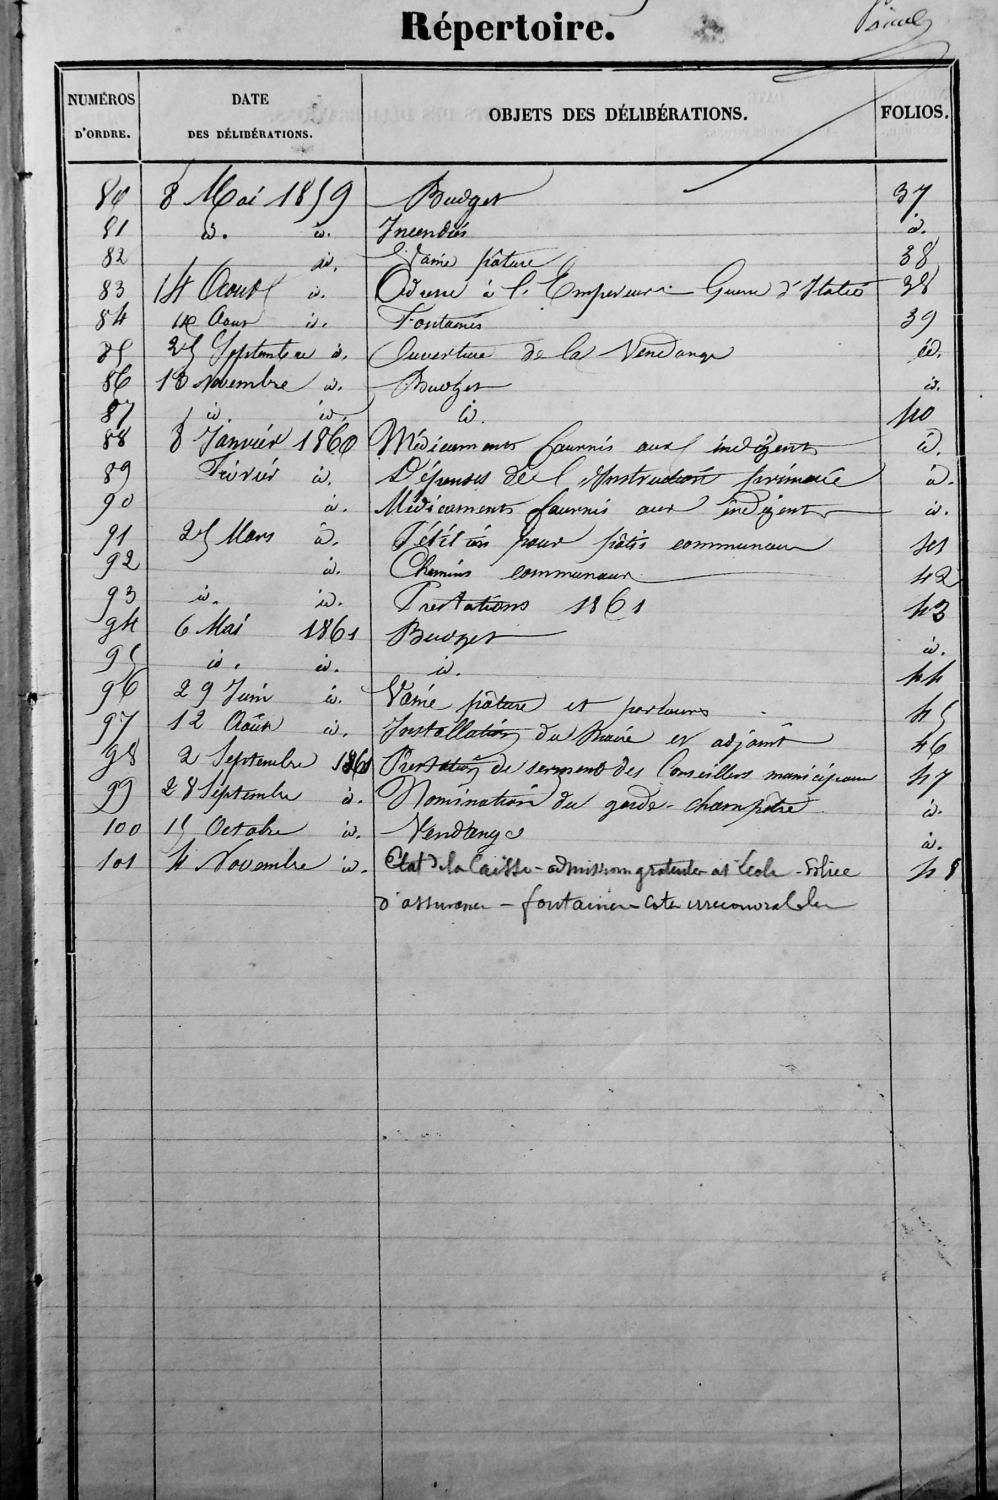 Répertoire.
NUMÉROS D'ORDRE. DATE DES DÉLIBÉRATIONS. OBJETS DES DÉLIBÉRATIONS. FOLIOS.
80 8 Mai 1859 Budget 37
81 id. id. Incendiés id.
82 id. Vaine pâture 38
83 14 Aout id. Adresse à l'Empereur - Guerre d'Italie 38
84 id Aout id. Fontaines 39
85 25 Septembre id. Ouverture de la Vendange id.
86 13 Novembre id. Budget id.
87 id. id. id. 40
88 8 Janvier 1860 Médicaments fournis aux indigents id.
89 Février id. Dépenses de l'Instruction primaire id.
90 id. Médicaments fournis aux indigents id.
91 25 Mars id. Pétition pour pâtis communaux 41
92 id. Chemins communaux 42
93 id. id. Prestations 1861 43
94 6 Mai 1861 Budget id.
95 id. id. id. 44
96 29 Juin id. Vaine pâture et parcours 45
97 12 Août id. Installation du Maire et adjoint 46
98 2 Septembre 1860 Prestation de serment des Conseillers municipaux 47
99 28 Septembre id. Nomination du garde-champêtre id.
100 15 Octobre id. Vendange id.
101 4 Novembre id. Etat de la Caisse - admission gratuite à l'école - Police 48
d'assurance - fontainier - Cotes irrecouvrables